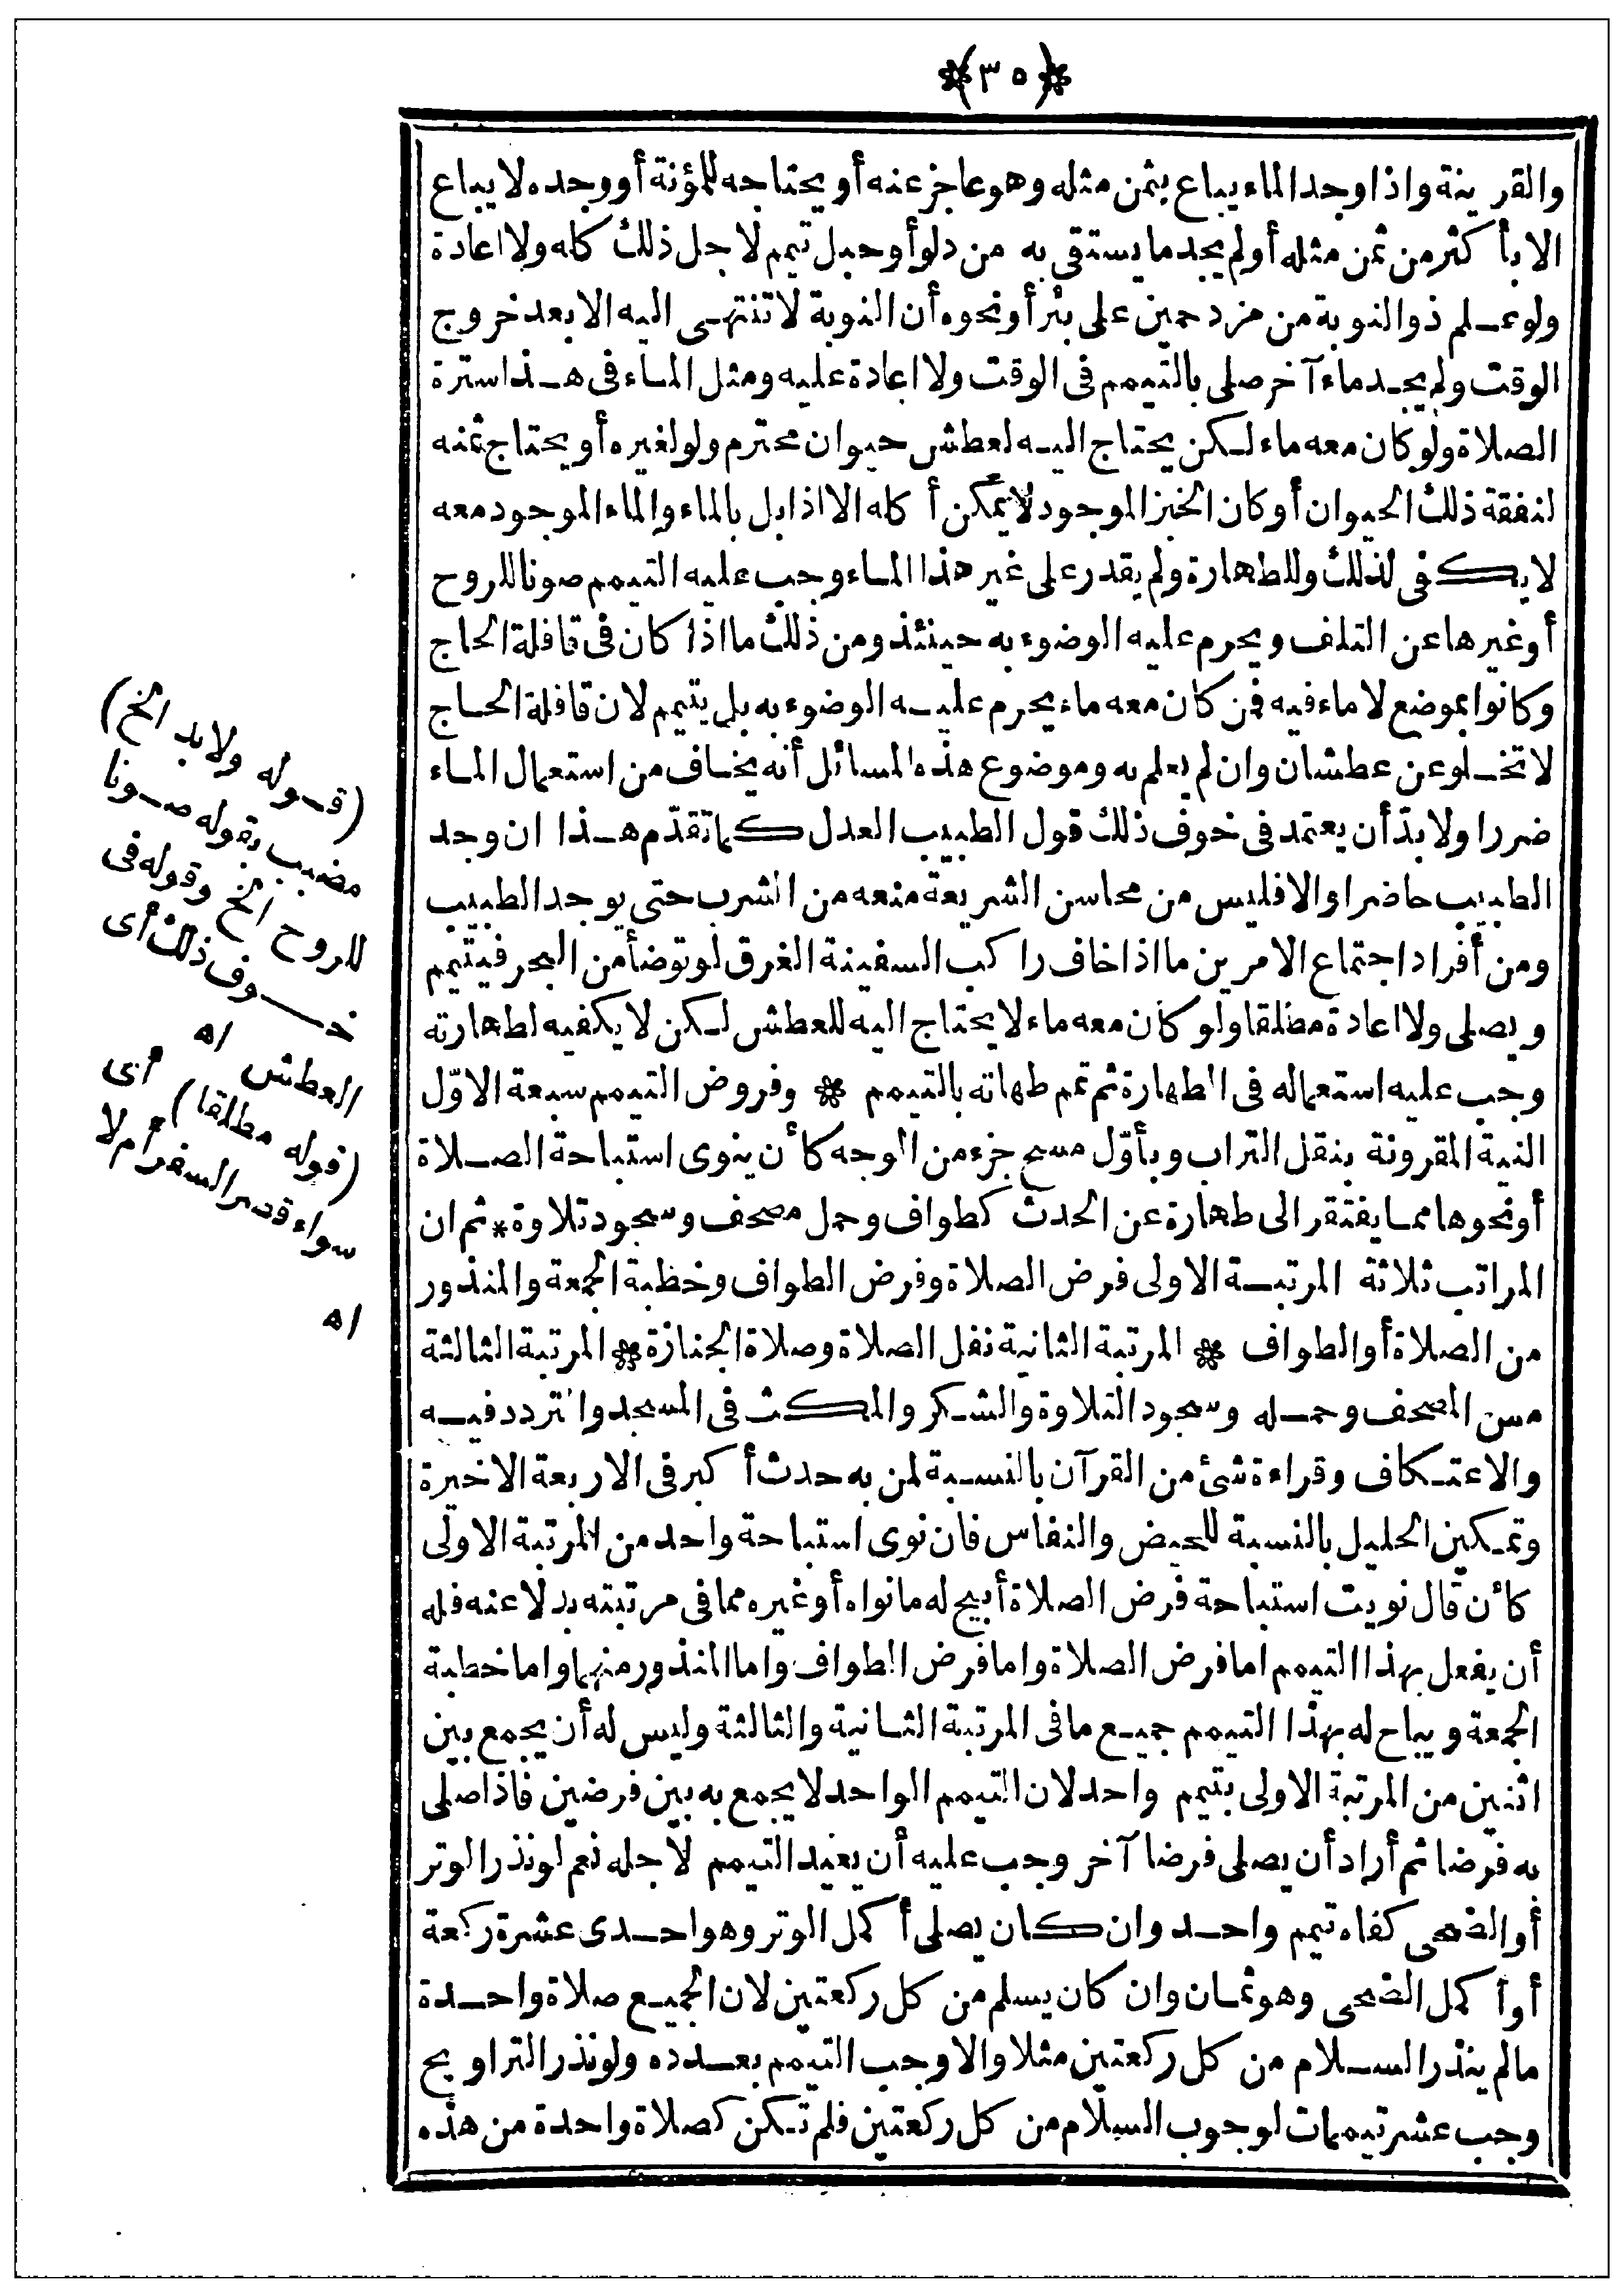 ﴿٣٥﴾
والقرينة واذا وجد الماء يباع بثمن مثله وهو عاجز عنه أو يحتاجه للمؤنة أو وجده لا يباع
الا بأكثر من ثمن مثله أو لم يجد ما يستقى به من دلو أو حبل تيمم لاجل ذلك كله ولا اعادة
ولو علم ذو النوبة من مزدحمين على بئر أو نحوه أن النوبة لا تنتهى اليه الا بعد خروج
الوقت ولم يجد ماء آخر صلى بالتيمم فى الوقت ولا اعادة عليه ومثل الماء فى هذا سترة
الصلاة ولو كان معه ماء لكن يحتاج اليه لعطش حيوان محترم ولو لغيره أو يحتاج ثمنه
لنفقة ذلك الحيوان أو كان الخبز الموجود لا يمكن أكله الا اذا بل بالماء والماء الموجود معه
لا يكفى لذلك وللطهارة ولم يقدر على غير هذا الماء وجب عليه التيمم صونا للروح
أو غيرها عن التلف ويحرم عليه الوضوء به حينئذ ومن ذلك ما اذا كان فى قافلة الحاج
وكانوا بموضع لا ماء فيه فمن كان معه ماء يحرم عليه الوضوء به بل يتيمم لان قافلة الحاج
لا تخلو عن عطشان وان لم يعلم به وموضوع هذه المسائل أنه يخاف من استعمال الماء
ضررا ولا بدّ أن يعتمد فى خوف ذلك قول الطبيب العدل كما تقدّم هذا ان وجد
الطبيب حاضرا والا فليس من محاسن الشريعة منعه من الشرب حتى يوجد الطبيب
ومن أفراد اجتماع الامرين ما اذا خاف راكب السفينة الغرق لو توضأ من البحر فيتيمم
ويصلى ولا اعادة مطلقا ولو كان معه ماء لا يحتاج اليه للعطش لكن لا يكفيه لطهارته
وجب عليه استعماله فى الطهارة ثم تمم طهاته بالتيمم * وفروض التيمم سبعة الاوّل
النية المقرونة بنقل التراب وبأوّل مسح جزء من الوجه كأن ينوى استباحة الصلاة
أو نحوها مما يفتقر الى طهارة عن الحدث كطواف وحمل مصحف وسجود تلاوة * ثم ان
المراتب ثلاثة المرتبة الاولى فرض الصلاة وفرض الطواف وخطبة الجمعة والمنذور
من الصلاة أو الطواف * المرتبة الثانية نفل الصلاة وصلاة الجنازة * المرتبة الثالثة
مس المصحف وحمله وسجود التلاوة والشكر والمكث فى المسجد والتردد فيه
والاعتكاف وقراءة شئ من القرآن بالنسبة لمن به حدث أكبر فى الاربعة الاخيرة
وتمكين الحليل بالنسبة للحيض والنفاس فان نوى استباحة واحد من المرتبة الاولى
كأن قال نويت استباحة فرض الصلاة أبيح له ما نواه أو غيره مما فى مرتبته بدلا عنه فله
أن يفعل بهذا التيمم اما فرض الصلاة واما فرض الطواف واما المنذور منهما واما خطبة
الجمعة ويباح له بهذا التيمم جميع ما فى المرتبة الثانية والثالثة وليس له أن يجمع بين
اثنين من المرتبة الاولى بتيمم واحد لان التيمم الواحد لا يجمع به بين فرضين فاذا صلى
به فرضا ثم أراد أن يصلى فرضا آخر وجب عليه أن يعيد التيمم لاجله نعم لو نذر الوتر
أو الضحى كفاه تيمم واحد وان كان يصلى أكمل الوتر وهو احدى عشرة ركعة
أو أكمل الضحى وهو ثمان وان كان يسلم من كل ركعتين لان الجميع صلاة واحدة
ما لم ينذر السلام من كل ركعتين مثلا والا وجب التيمم بعدده ولو نذر التراويح
وجب عشر تيممات لوجوب السلام من كل ركعتين فلم تكن كصلاة واحدة من هذه
(قوله ولابد الخ)
مضبب بقوله صونا
للروح الخ وقوله فى
خوف ذلك أى
العطش اه
(قوله مطلقا) أى
سواء قصر السفر أم لا
اه